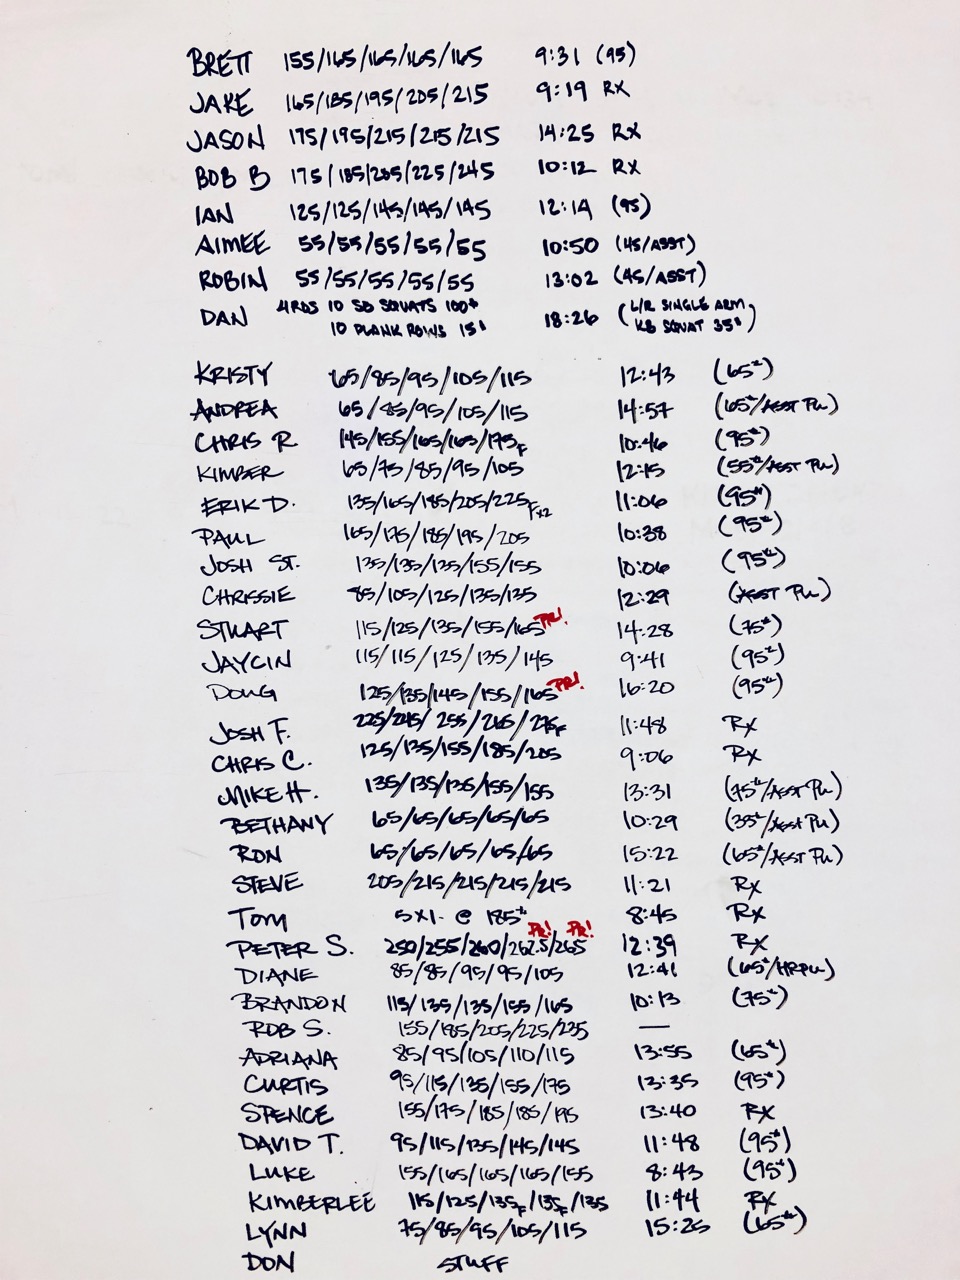 BRETT 155/165/165/165/165 9:31 (95)
JAKE 165/185/195/205/215 9:19 RX
JASON 175/195/215/215/215 14:25 RX
BOB B 175/185/205/225/245 10:12 RX
IAN 125/125/145/145/145 12:14 (95)
AIMEE 55/55/55/55/55 10:50 (45/ASST)
ROBIN 55/55/55/55/55 13:02 (45/ASST)
DAN 4 RDS 10 SB SQUATS 100# 18:26 (L/R SINGLE ARM
10 PLANK ROWS 15# KB SQUAT 35#)
KRISTY 65/85/95/105/115 12:43 (65#)
ANDREA 65/85/95/105/115 14:57 (65#/ASST PU)
CHRIS R 145/155/165/165/175F 10:46 (95#)
KIMBER 65/75/85/95/105 12:15 (55#/ASST PU)
ERIK D. 135/165/185/205/225Fx2 11:06 (95#)
PAUL 165/175/185/195/205 10:38 (95#)
JOSH ST. 135/135/135/155/155 10:06 (95#)
CHRISSIE 85/105/125/135/135 12:29 (ASST PU)
STUART 115/125/135/155/165 PR! 14:28 (75#)
JAYCIN 115/115/125/135/145 9:41 (95#)
DOUG 125/135/145/155/165 PR! 16:20 (95#)
JOSH F. 225/245/255/265/275F 11:48 RX
CHRIS C. 125/135/155/185/205 9:06 RX
MIKE H. 135/135/135/155/155 13:31 (75#/ASST PU)
BETHANY 65/65/65/65/65 10:29 (35#/ASST PU)
RON 65/65/65/65/65 15:22 (65#/ASST PU)
STEVE 205/215/215/215/215 11:21 RX
TOM 5X1 @ 185# 8:45 RX
PETER S. 250/255/260/262.5 PR!/265 PR! 12:39 RX
DIANE 85/85/95/95/105 12:41 (65#/HRPU)
BRANDON 115/135/135/155/165 10:13 (75#)
ROB S. 155/185/205/225/235 —
ADRIANA 85/95/105/110/115 13:55 (65#)
CURTIS 95/115/135/155/175 13:35 (95#)
SPENCE 155/175/185/185/195 13:40 RX
DAVID T. 95/115/135/145/145 11:48 (95#)
LUKE 155/165/165/165/155 8:43 (95#)
KIMBERLEE 115/125/135F/135F/135 11:44 RX
LYNN 75/85/95/105/115 15:25 (65#)
DON STUFF